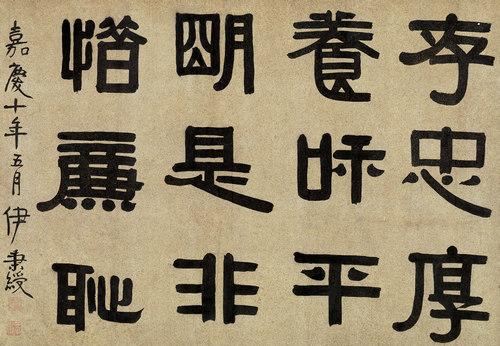 存忠厚
養咊平
朙是非
惜廉恥
嘉慶十年五月伊秉綬